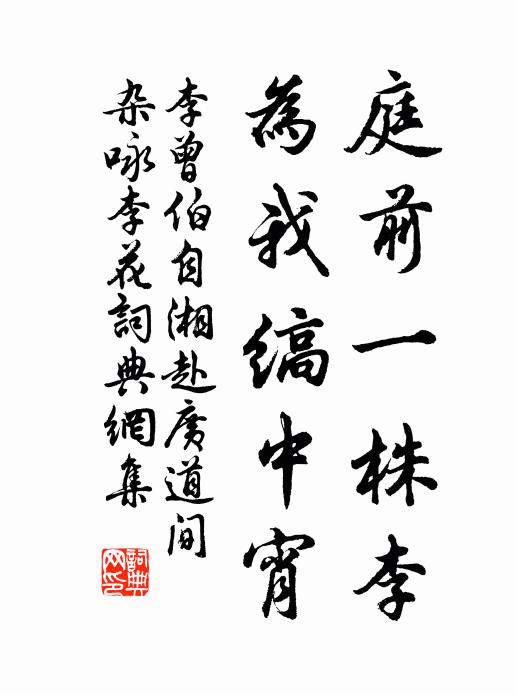 庭前一株李
為我縞中宵
李曾伯自湘赴廣道间
杂咏李花詞典網集
詞典
网印